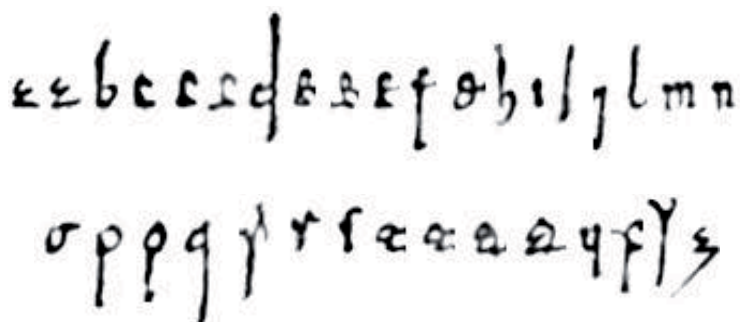 a a b c c c d e e e f g h i i j l m n
o p p q r r s t t t t u x y z